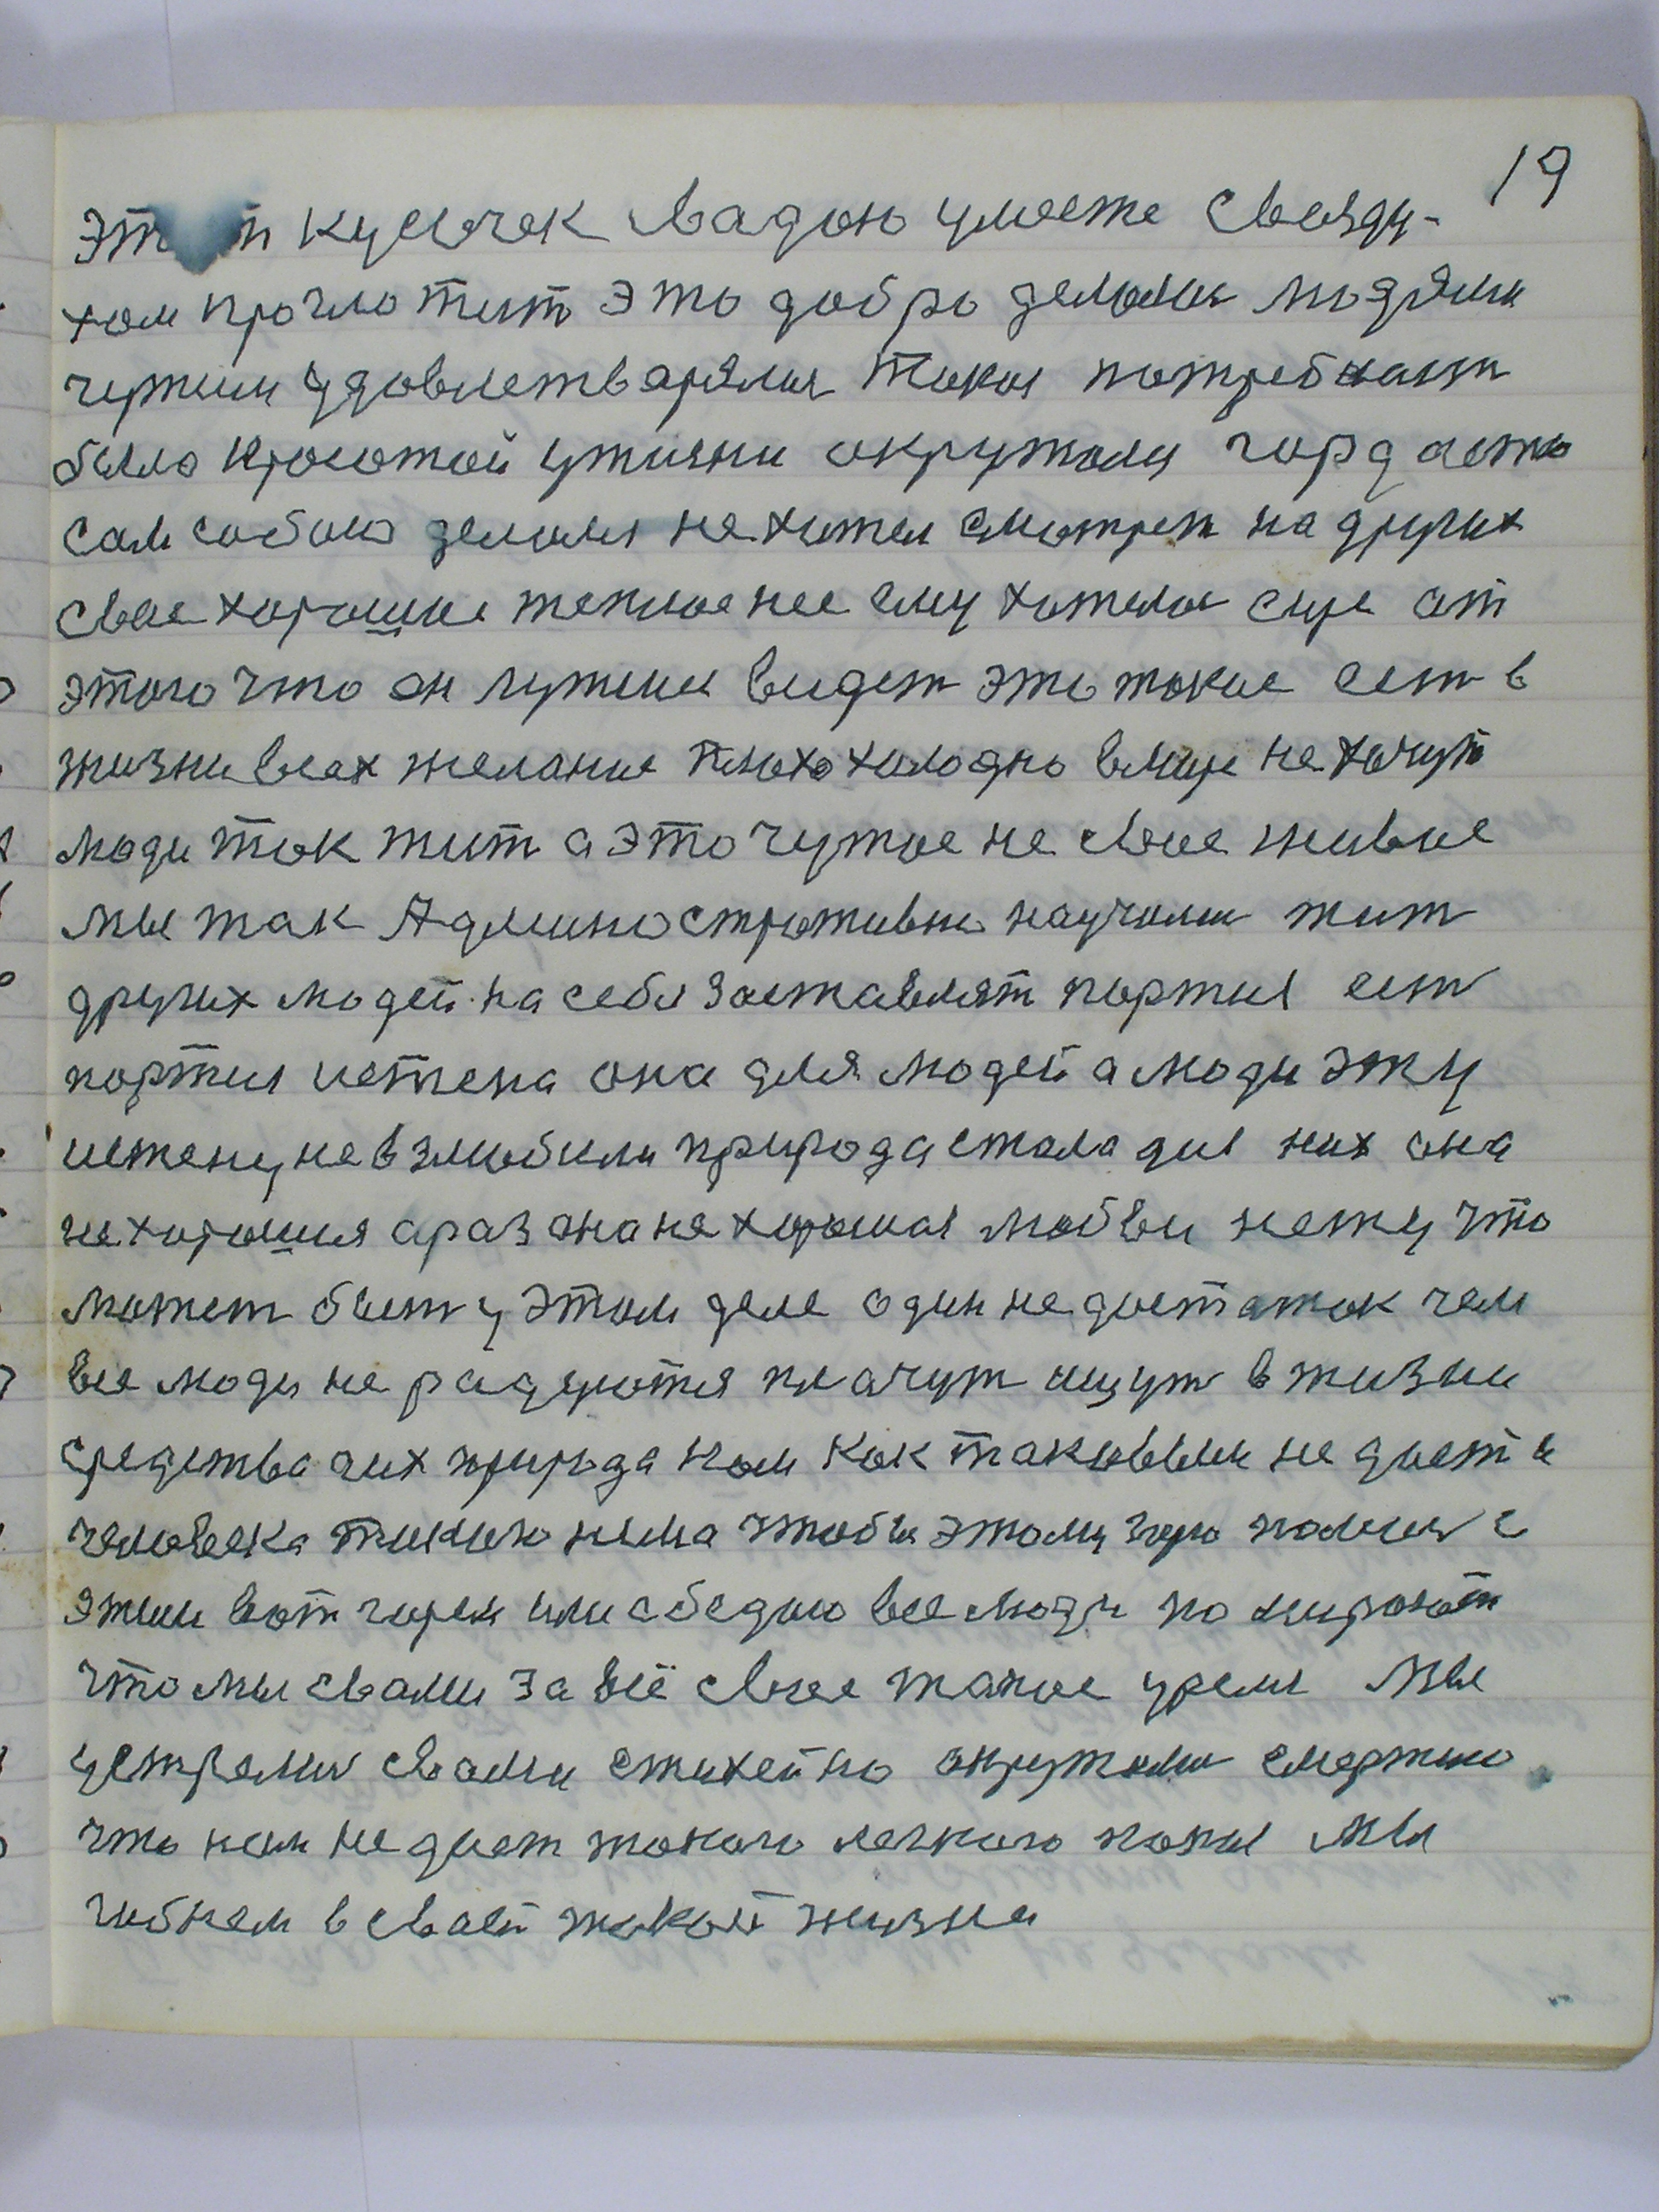 19
этот кусочек вадою уместе свозду-
хом проглотит это добро делалы людями
чужим удовлетварялы такая патребнасть
было красотой ужизни окружали гордасть
сам собою делался не хотел смотреть на других
свое хорошие теплое нее ему хотелось еще от
этого что он чужими видет это такие есть в
жизни всех желание плохо холодно вмире не хочут
люди так жит а это чужое не свое живое
мы так Административно научили жит
других людей на себя заставлят партия ест
партия истена она для людей а люди эту
истену не взлюбили природа стала для них она
не хорошия а раз она не хорошая любви нету что
может быть у этом деле один недостаток чем
все люди не радуются плачут ищут в жизни
средства аих природа нам как таковым не дает и
человека такого нима чтобы этому горю помоч с
этим вот горем или с бедою все люди по мирают
что мы свами за всё свое такое уремя мы
устремис свами стихейно окружили смертию
что нам не дает такого легкого пажит мы
гибнем в свой такой жизни